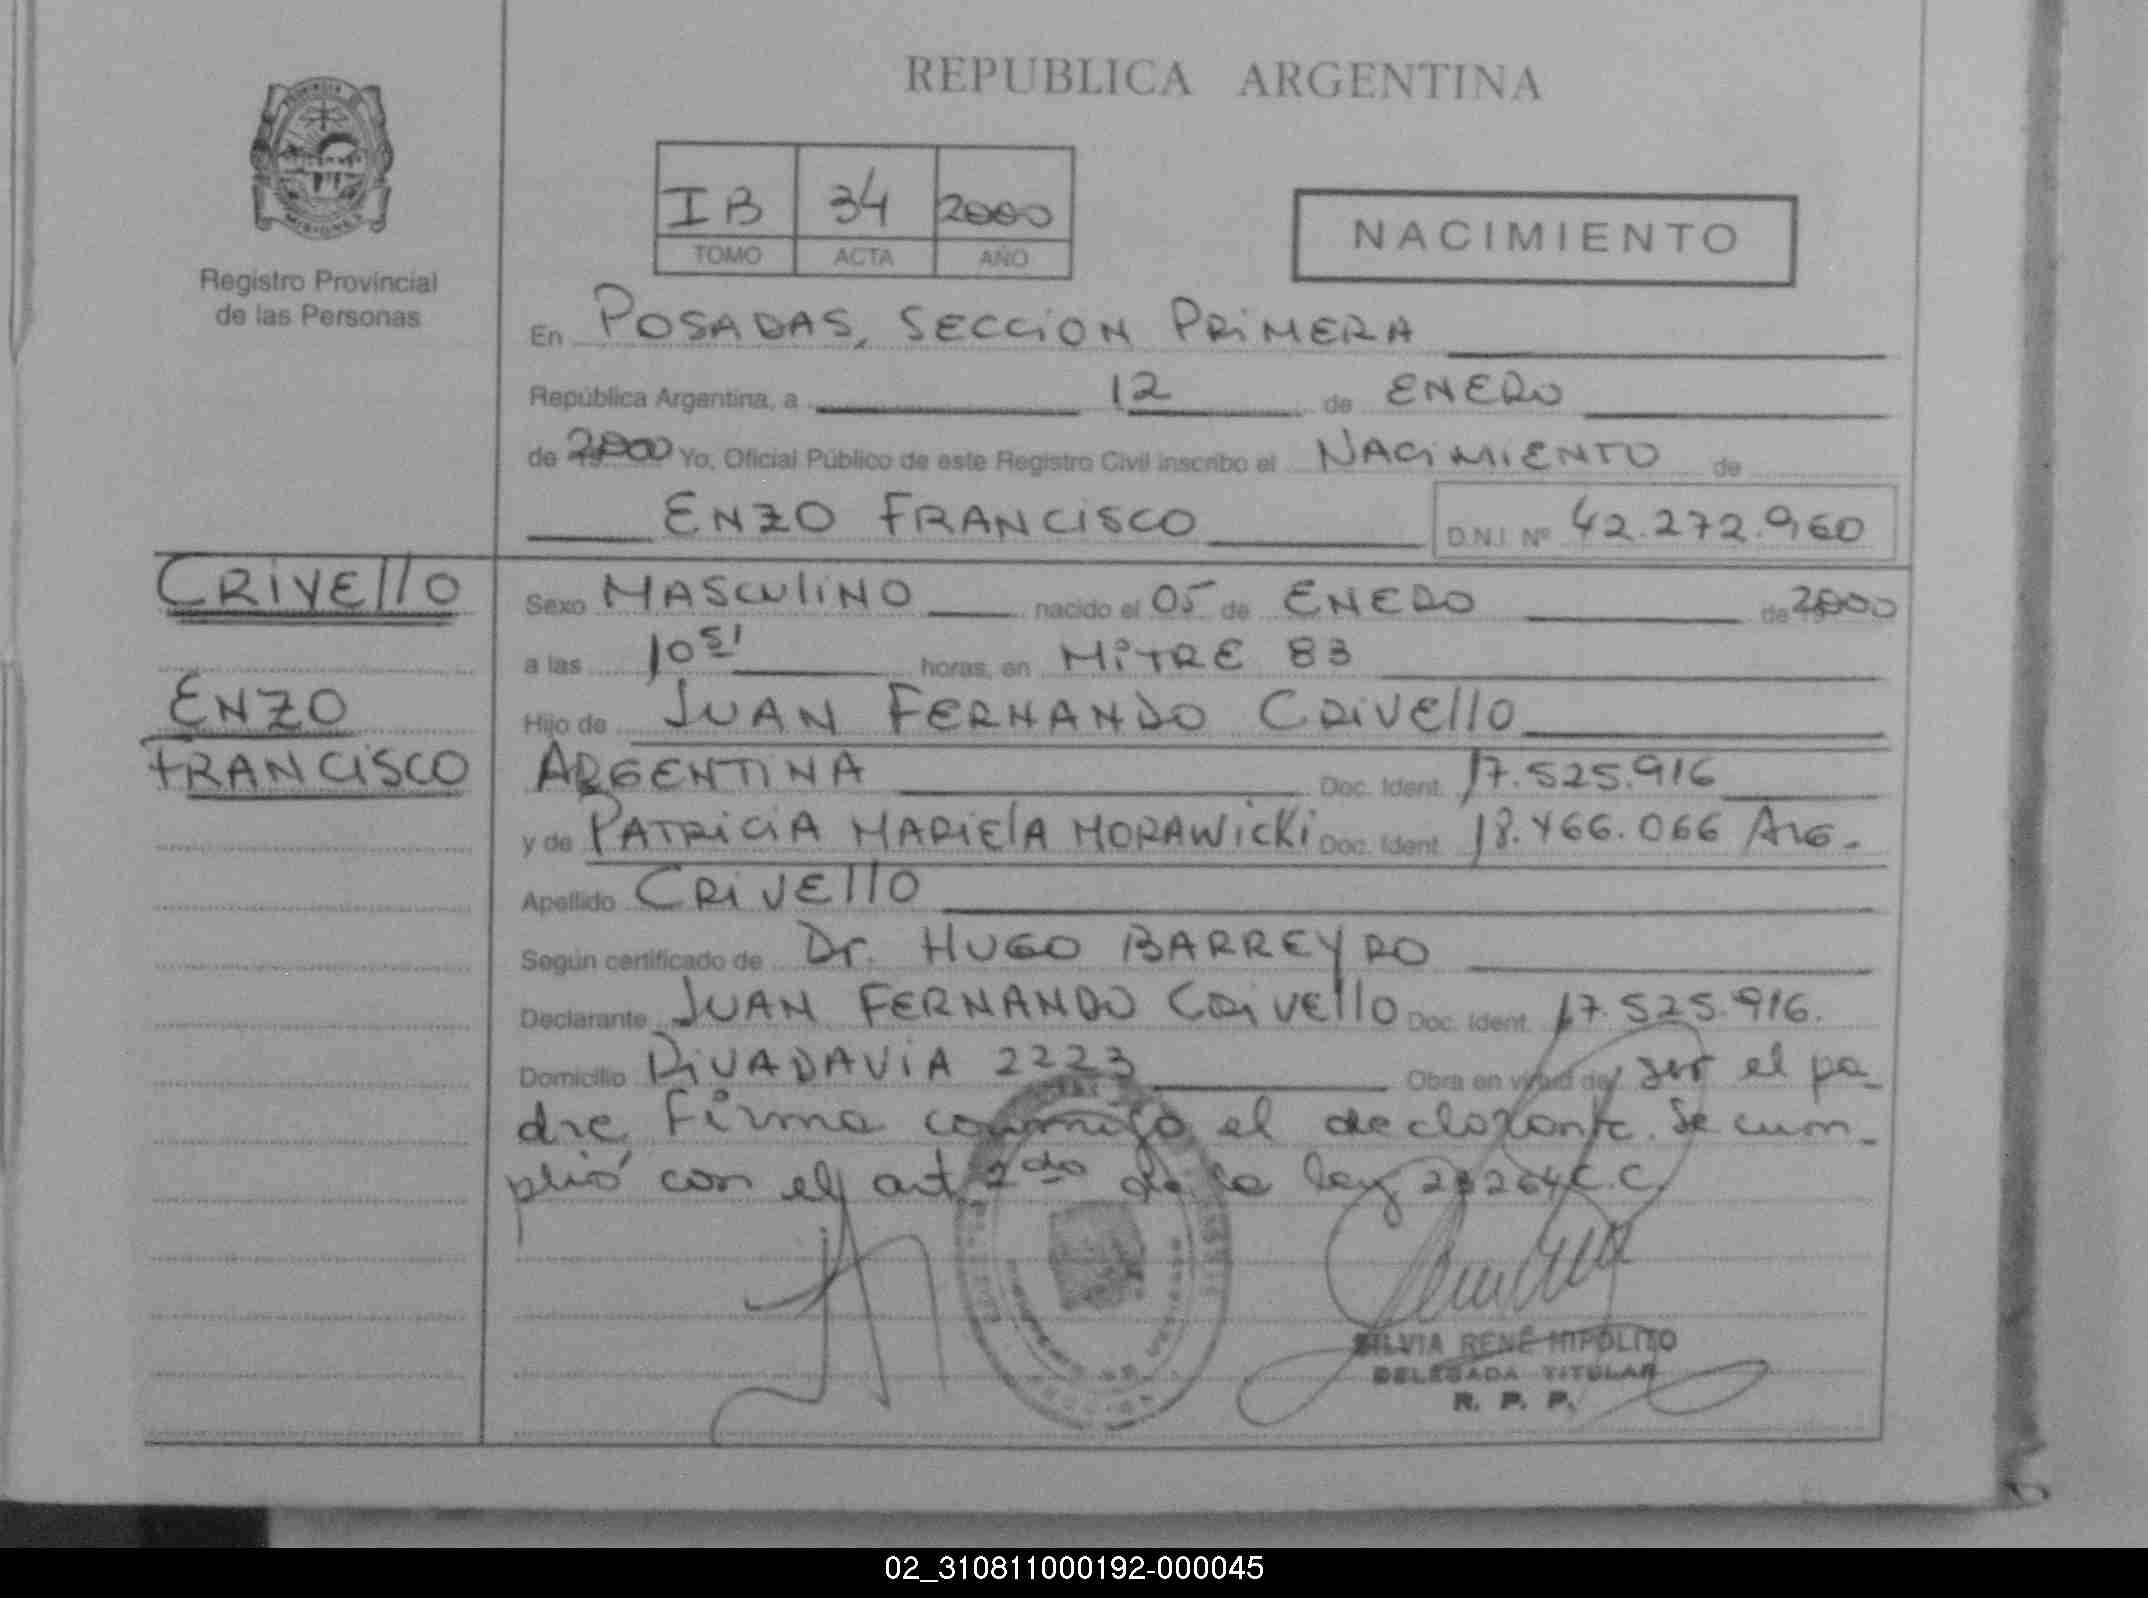 REPUBLICA ARGENTINA
Registro Provincial
de las Personas
IB 34 2000
TOMO ACTA AÑO
NACIMIENTO
En POSADAS, SECCION PRIMERA
República Argentina, a 12 de ENERO
de 2000 Yo, Oficial Público de este Registro Civil inscribo el NACIMIENTO de
ENZO FRANCISCO D.N.I. Nº 42.272.960
CRIVELLO
ENZO
FRANCISCO
Sexo MASCULINO nacido el 05 de ENERO de 2000
a las 10 51 horas, en MITRE 83
Hijo de JUAN FERNANDO CRIVELLO
ARGENTINA Doc. Ident. 17.525.916
y de PATRICIA MARIELA MORAWICKI Doc. Ident. 18.466.066 ARG.
Apellido CRIVELLO
Según certificado de Dr. HUGO BARREYRO
Declarante JUAN FERNANDO CRIVELLO Doc. Ident. 17.525.916.
Domicilio RIVADAVIA 2223 Obra en virtud de ser el pa-
dre. Firma conmigo el declarante. Se cum-
plió con el art 2do de la ley C.C.
SILVIA RENÉ HIPOLITO
DELEGADA TITULAR
R. P. P.
02_310811000192-000045